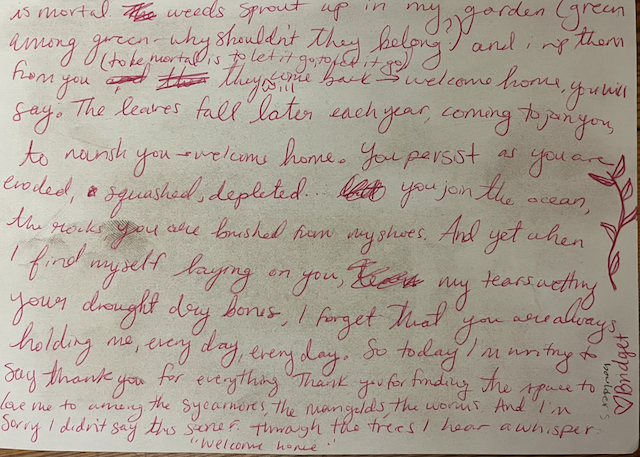 is mortal. weeds sprout up in my garden (green
among green - why shouldn't they belong?) and i rip them
(to be mortal is to let it go, to let it go)
from you they will come back → welcome home, you will
say. The leaves fall later each year, coming to join you,
to nourish you → welcome home. You persist as you are
eroded, squashed, depleted... you join the ocean,
the rocks you are brushed from my shoes. And yet when
I find myself laying on you, my tears wetting
your drought dry bones, I forget that you are always
holding me, every day, every day. So today I'm writing to
say thank you for everything Thank you for finding the space to
love me to among the sycamores, the marigolds, the worms. And I'm
sorry I didn't say this sooner. through the trees I hear a whisper:
"welcome home"
♡ bridget